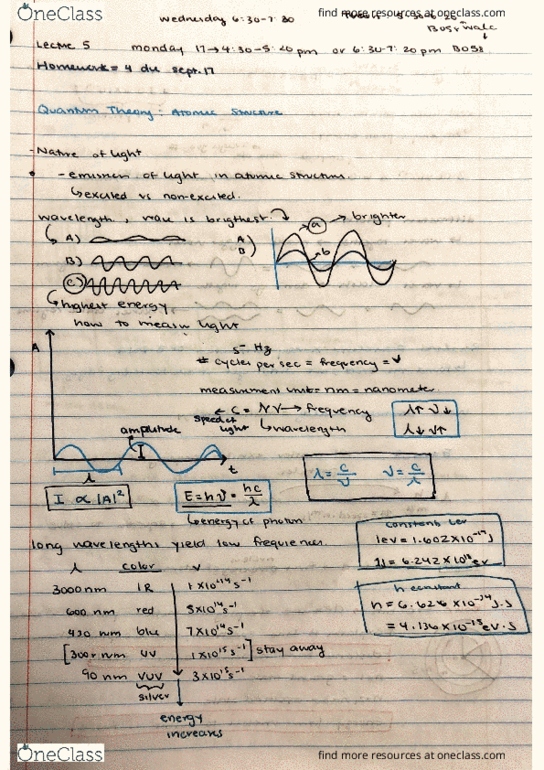 OneClass
find more resources at oneclass.com
wednesday 6:30-7:30
Lecture 5 monday 17→4:30-5:20pm or 6:30-7:20 pm
Homework = 4 due sept.17
Quantum Theory: Atomic Structure
-Nature of light
- emission of light in atomic structure.
↳ excited vs non-excited.
wavelength, wave is brightest.
a → brighter
A)
B)
A
B)
b
C)
↳ highest energy
how to measure light
A
s⁻ Hz
# cycles per sec = frequency = ν
measurement unit = nm = nanometer
← C = λν → frequency
speed of light
↳ wavelength
λ↑ ν↓
λ↓ ν↑
amplitude
λ
t
λ = c/ν ν = c/λ
I ∝ |A|²
E = hν = hc/λ
↳ energy of photon
long wavelengths yield low frequencies.
constants 1ev
1ev = 1.602×10⁻¹⁹J
1J = 6.242×10¹⁸ev
λ color ν
3000nm IR 1×10¹⁴s⁻¹
600 nm red 5×10¹⁴s⁻¹
430 nm blue 7×10¹⁴s⁻¹
[300 nm UV 1×10¹⁵s⁻¹] stay away
90 nm VUV 3×10¹⁵s⁻¹
silver
energy increases
h constant
h = 6.626 ×10⁻³⁴J.s
= 4.136×10⁻¹⁵eV.s
OneClass
find more resources at oneclass.com